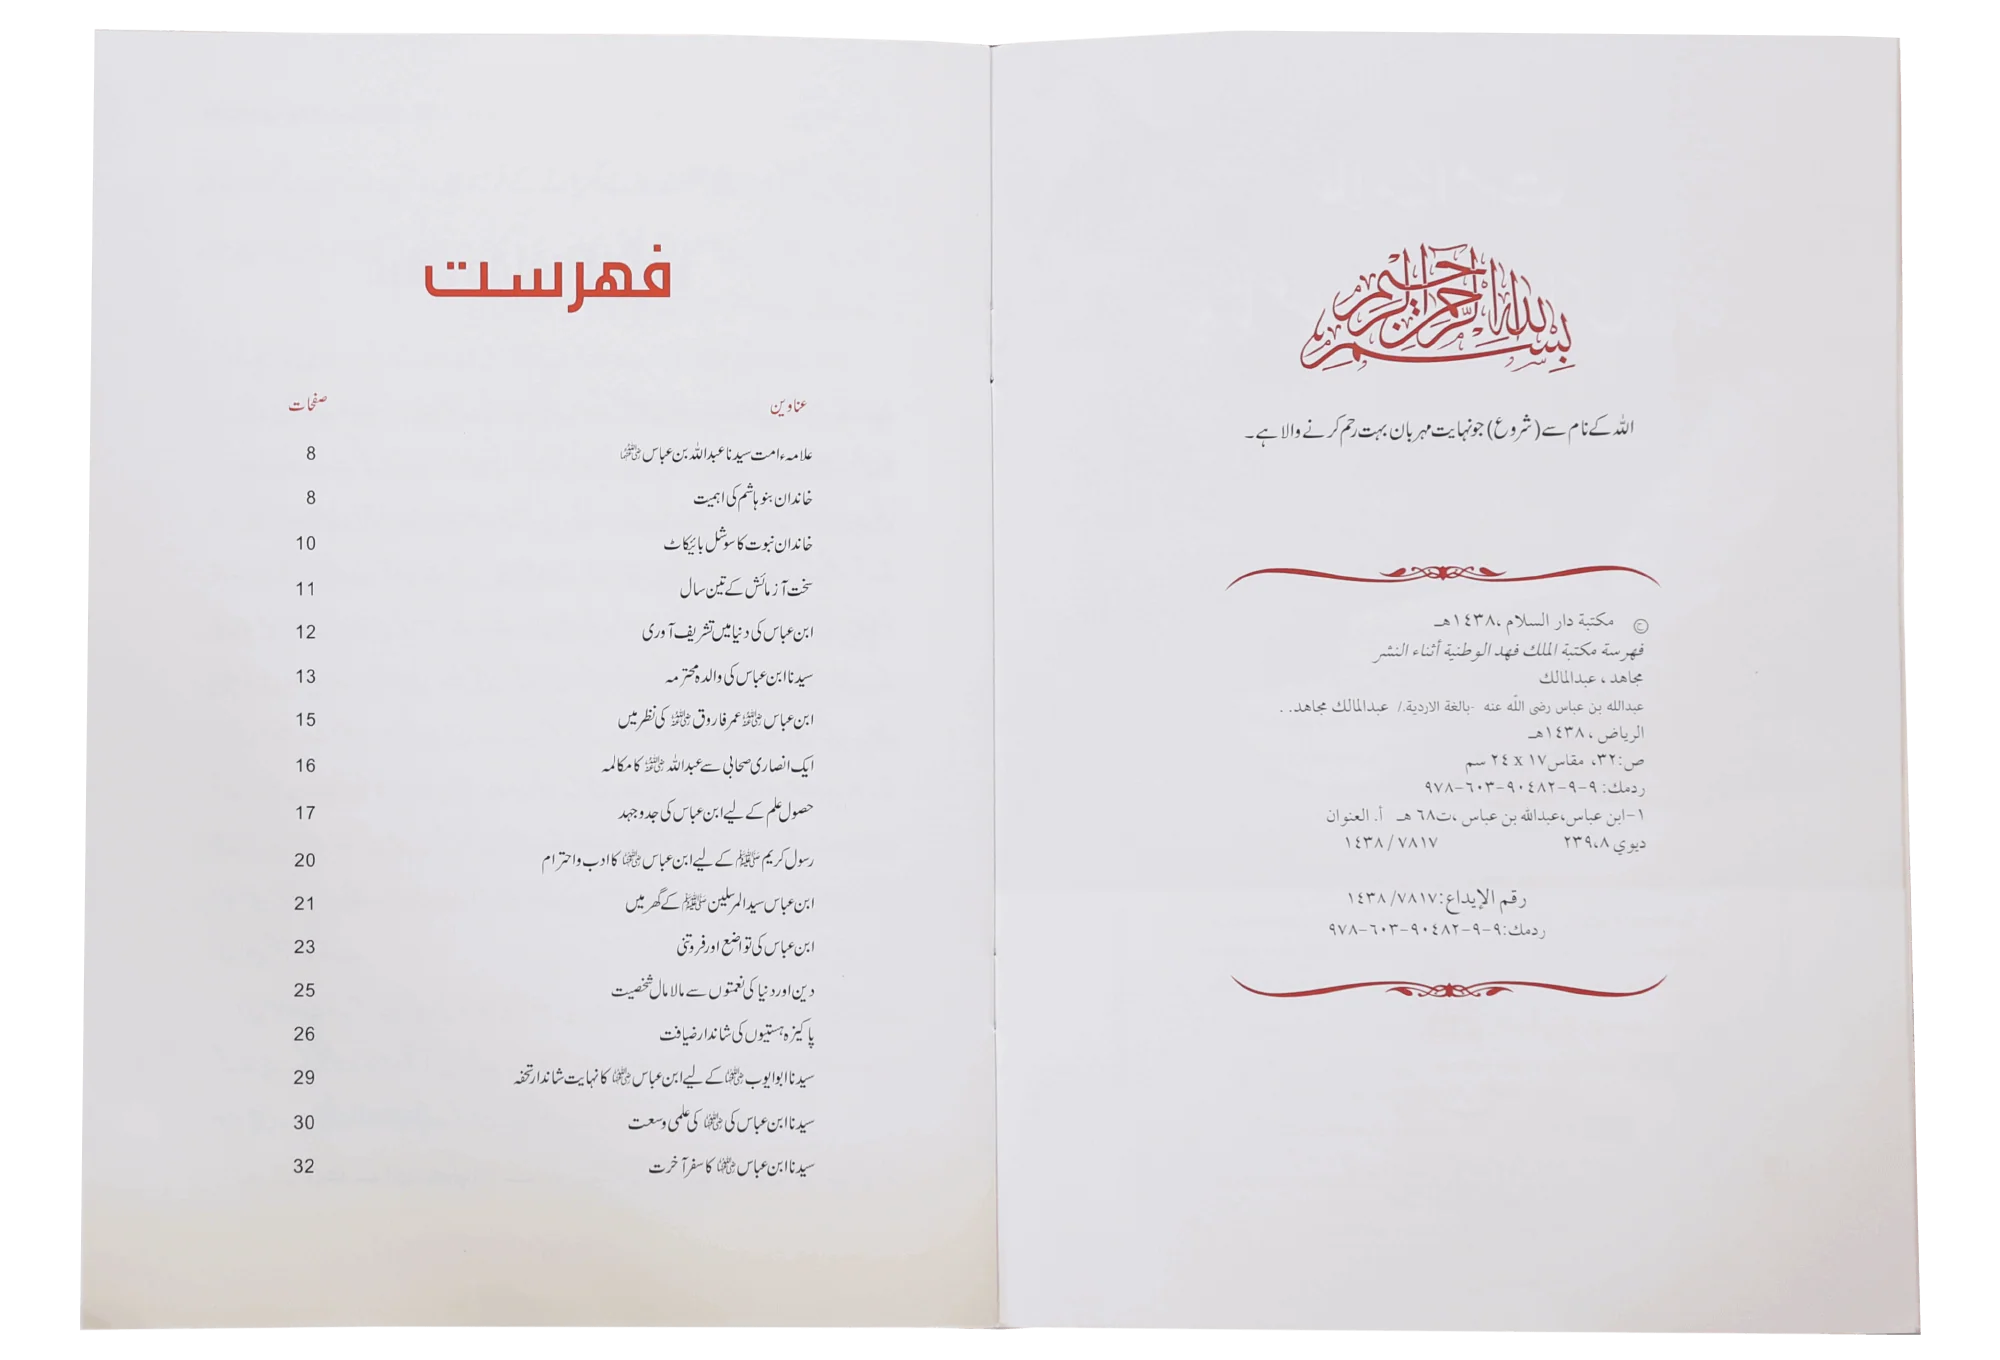 بسم الله الرحمن الرحيم
اللہ کے نام سے (شروع) جو نہایت مہربان بہت رحم کرنے والا ہے۔
ح مكتبة دار السلام ،١٤٣٨هـ
فهرسة مكتبة الملك فهد الوطنية أثناء النشر
مجاهد ، عبدالمالك
عبدالله بن عباس رضى اللّه عنه -بالغة الاردية./ عبدالمالك مجاهد. .
الرياض ، ١٤٣٨هـ
ص:٣٢، مقاس١٧ x ٢٤ سم
ردمك: ٩-٩-٩٠٤٨٢-٦٠٣-٩٧٨
١-ابن عباس،عبدالله بن عباس ،ت٦٨ هـ أ. العنوان
ديوي ٢٣٩،٨ ١٤٣٨/٧٨١٧
رقم الإيداع:١٤٣٨/٧٨١٧
ردمك:٩-٩-٩٠٤٨٢-٦٠٣-٩٧٨
فہرست
عناوین صفحات
علامہء امت سیدنا عبداللہ بن عباس رضی اللہ عنہما 8
خاندان بنو ہاشم کی اہمیت 8
خاندان نبوت کا سوشل بائیکاٹ 10
سخت آزمائش کے تین سال 11
ابن عباس کی دنیا میں تشریف آوری 12
سیدنا ابن عباس کی والدہ محترمہ 13
ابن عباس رضی اللہ عنہ عمر فاروق رضی اللہ عنہ کی نظر میں 15
ایک انصاری صحابی سے عبداللہ رضی اللہ عنہ کا مکالمہ 16
حصول علم کے لیے ابن عباس کی جدوجہد 17
رسول کریم ﷺ کے لیے ابن عباس رضی اللہ عنہما کا ادب و احترام 20
ابن عباس سید المرسلین ﷺ کے گھر میں 21
ابن عباس کی تواضع اور فروتنی 23
دین اور دنیا کی نعمتوں سے مالا مال شخصیت 25
پاکیزہ ہستیوں کی شاندار ضیافت 26
سیدنا ابو ایوب رضی اللہ عنہما کے لیے ابن عباس رضی اللہ عنہما کا نہایت شاندار تحفہ 29
سیدنا ابن عباس کی رضی اللہ عنہما کی علمی وسعت 30
سیدنا ابن عباس رضی اللہ عنہما کا سفر آخرت 32